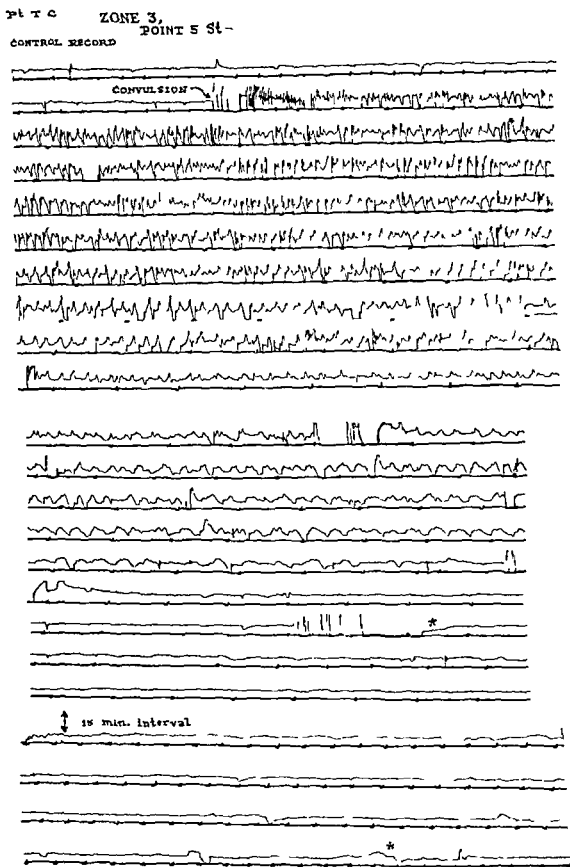 Pt T C ZONE 3,
POINT 5 St-
CONTROL RECORD
CONVULSION
*
15 min. interval
*